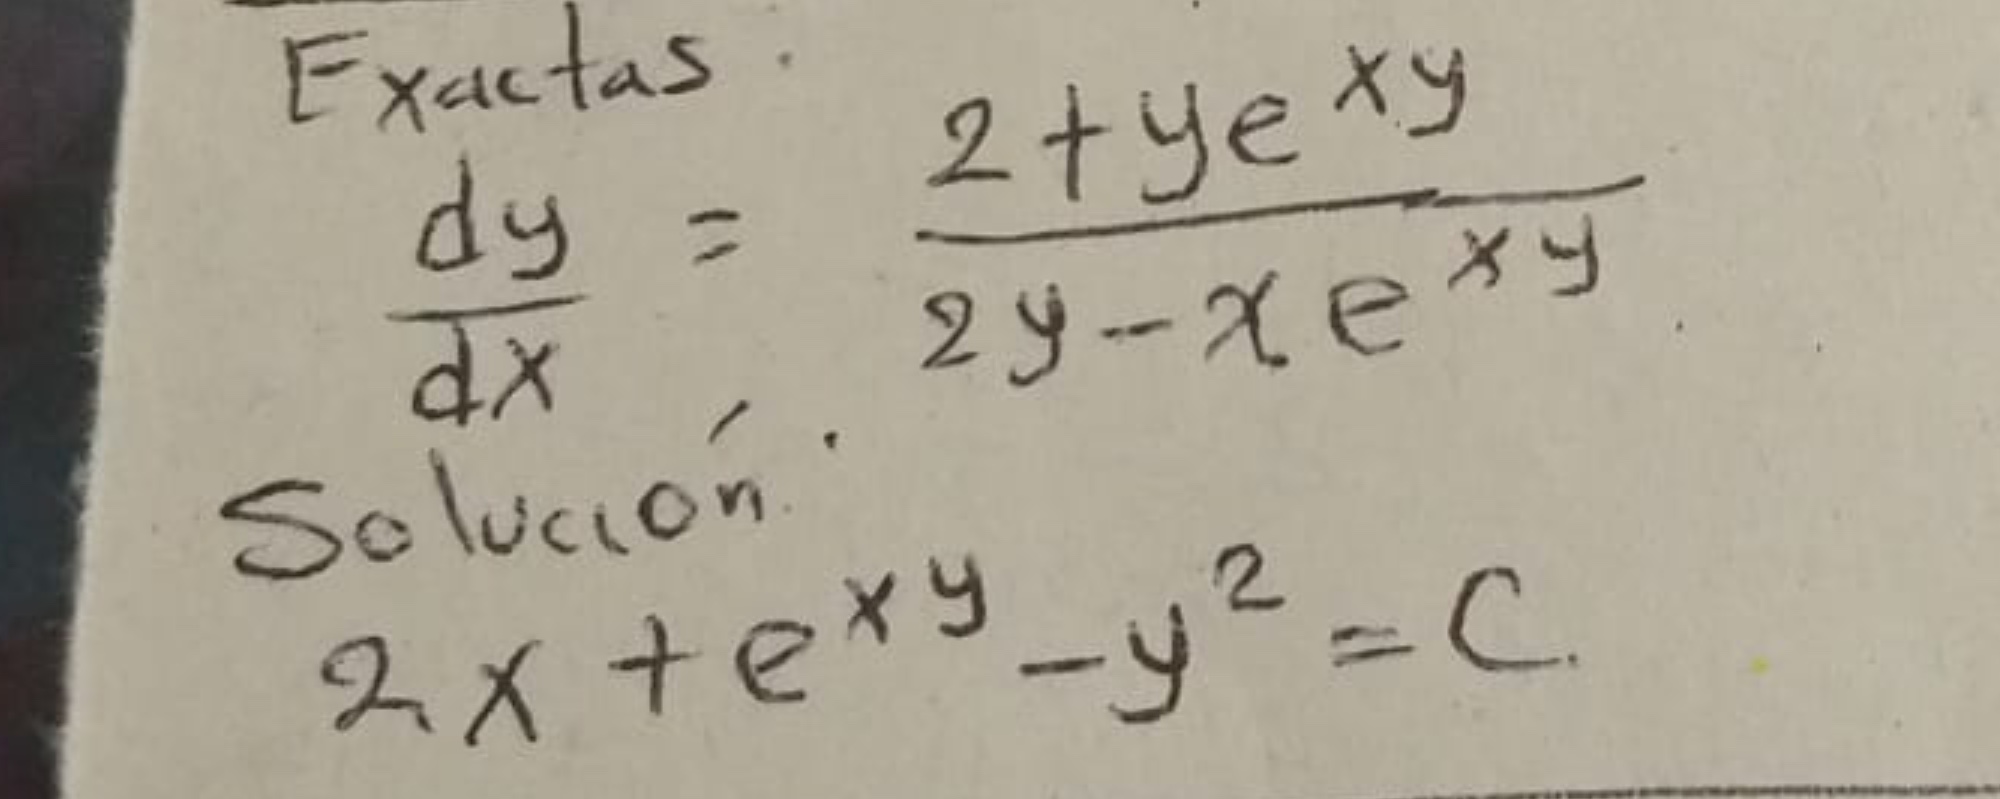 Exactas.
dy/dx = (2+ye^xy)/(2y-xe^xy)
Solución.
2x+e^xy-y^2=C.